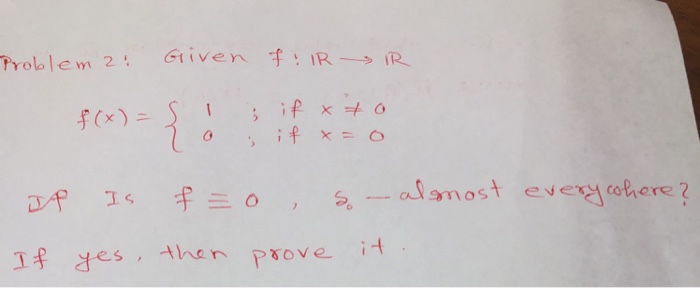 Problem 2: Given f: ℝ → ℝ
f(x) = { 1 ; if x ≠ 0
0 ; if x = 0
If Is f ≡ 0, δ₀ - almost everywhere?
If yes, then prove it.